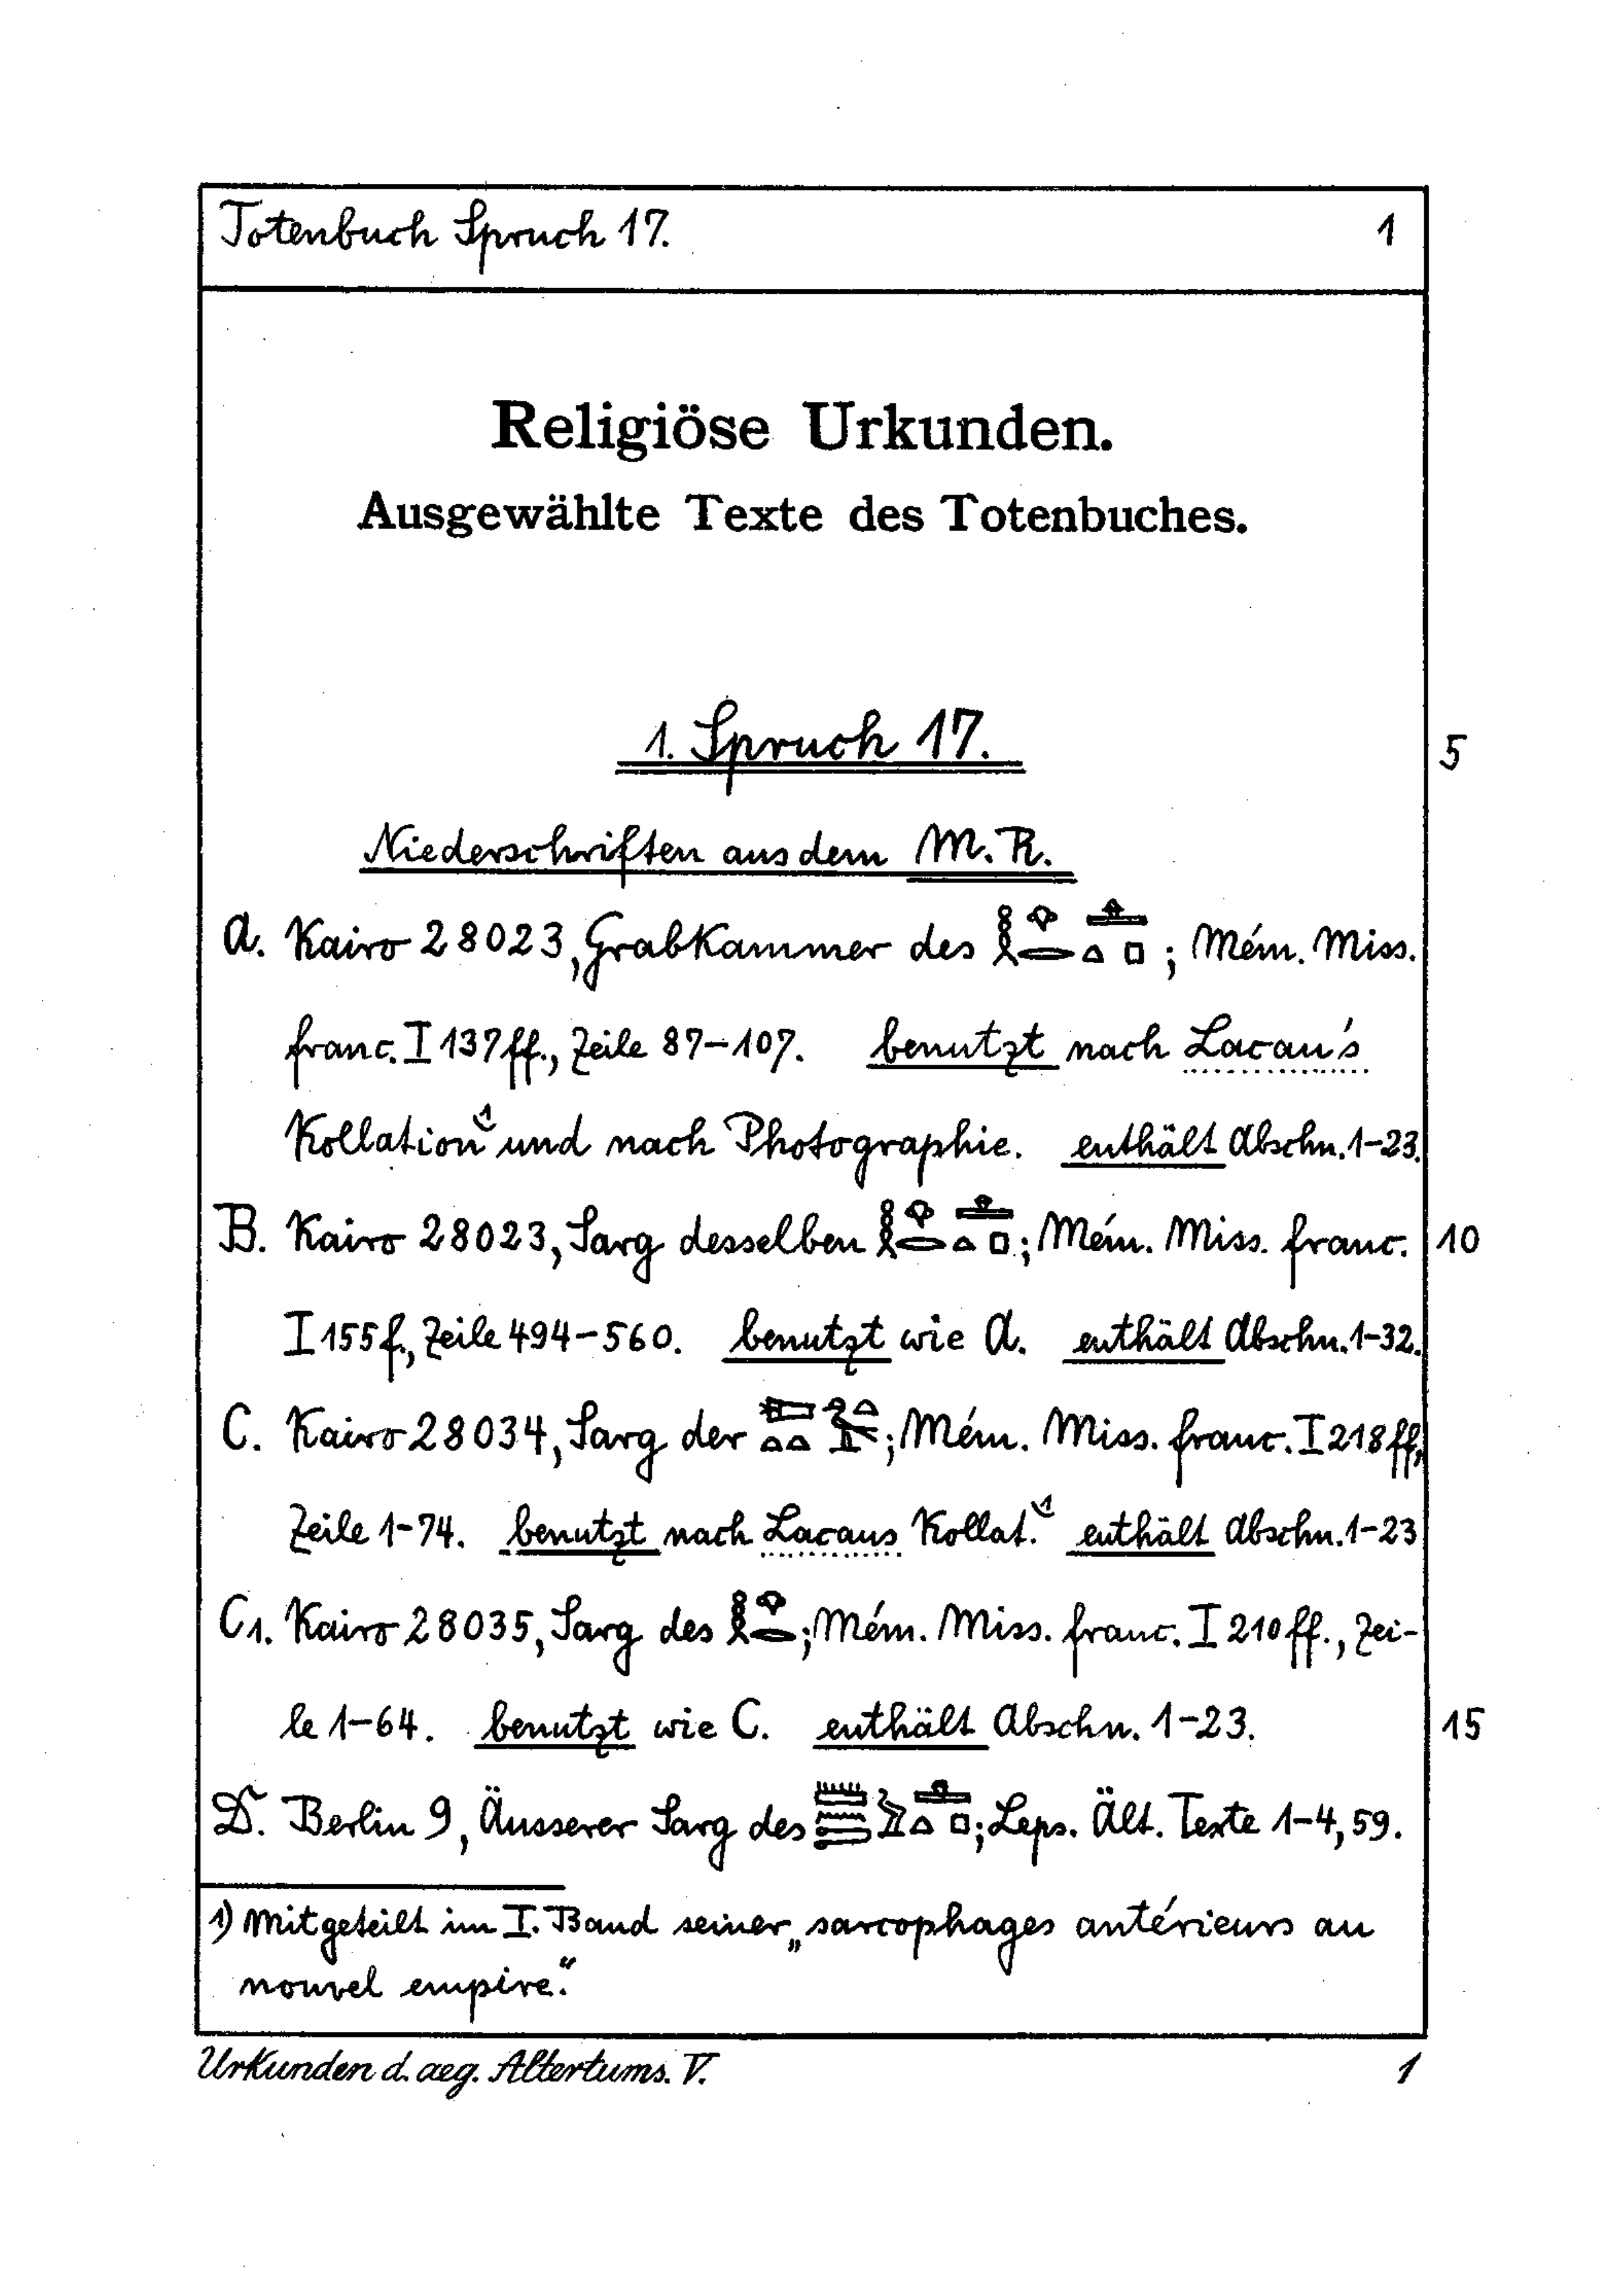 Totenbuch Spruch 17. 1
Religiöse Urkunden.
Ausgewählte Texte des Totenbuches.
1. Spruch 17. 5
Niederschriften aus dem M.R.
A. Kairo 28023, Grabkammer des 𓎛𓁷𓂋𓊵𓏏𓊪; Mém. Miss.
franc. I 137ff., Zeile 87–107. benutzt nach Lacau's
Kollation¹⁾ und nach Photographie. enthält Abschn. 1–23.
B. Kairo 28023, Sarg desselben 𓎛𓁷𓂋𓊵𓏏𓊪; Mém. Miss. franc. 10
I 155f., Zeile 494–560. benutzt wie A. enthält Abschn. 1–32.
C. Kairo 28034, Sarg der ; Mém. Miss. franc. I 218ff,
Zeile 1–74. benutzt nach Lacaus Kollat.¹⁾ enthält Abschn. 1–23
C1. Kairo 28035, Sarg des 𓎛𓁷𓂋; Mém. Miss. franc. I 210ff., Zei-
le 1–64. benutzt wie C. enthält Abschn. 1–23. 15
D. Berlin 9, Äusserer Sarg des ; Leps. Ält. Texte 1–4, 59.
1) Mitgeteilt im I. Band seiner „sarcophages antérieurs au
nouvel empire.“
Urkunden d. aeg. Altertums. V. 1